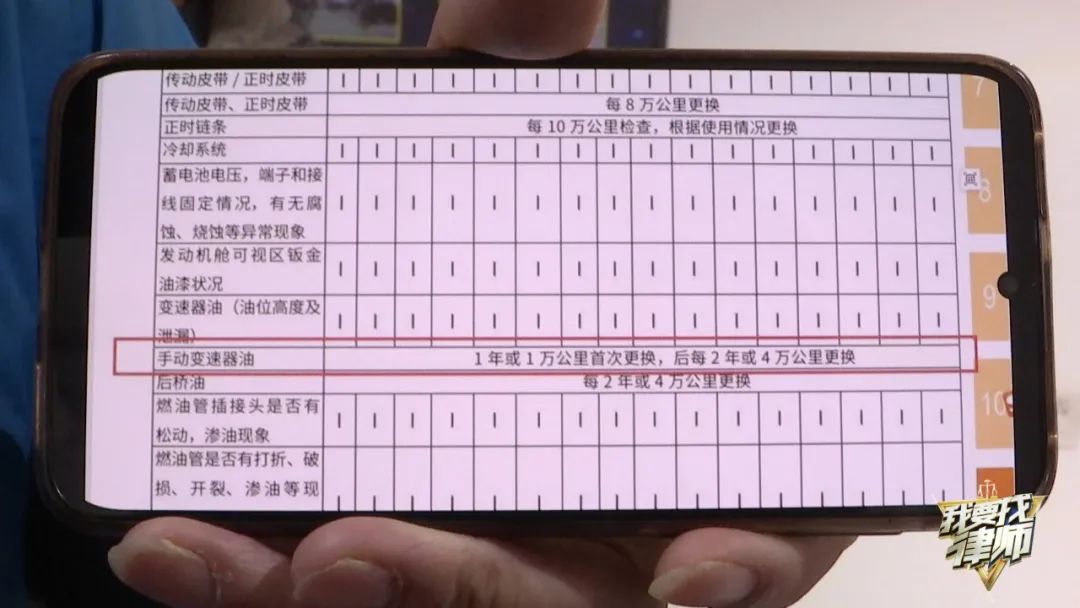 传动皮带 / 正时皮带 I I I I I I I I I I I I I I I I
传动皮带、正时皮带 每 8 万公里更换
正时链条 每 10 万公里检查，根据使用情况更换
冷却系统 I I I I I I I I I I I I I I I I
蓄电池电压，端子和接
线固定情况，有无腐 I I I I I I I I I I I I I I I I
蚀、烧蚀等异常现象
发动机舱可视区钣金
油漆状况 I I I I I I I I I I I I I I I I
变速器油（油位高度及
泄漏） I I I I I I I I I I I I I I I I
手动变速器油 1 年或 1 万公里首次更换，后每 2 年或 4 万公里更换
后桥油 每 2 年或 4 万公里更换
燃油管插接头是否有
松动，渗油现象 I I I I I I I I I I I I I I I I
燃油管是否有打折、破
损、开裂、渗油等现 I I I I I I I I I I I I I I I I
7
8
9
10
我要找
律师